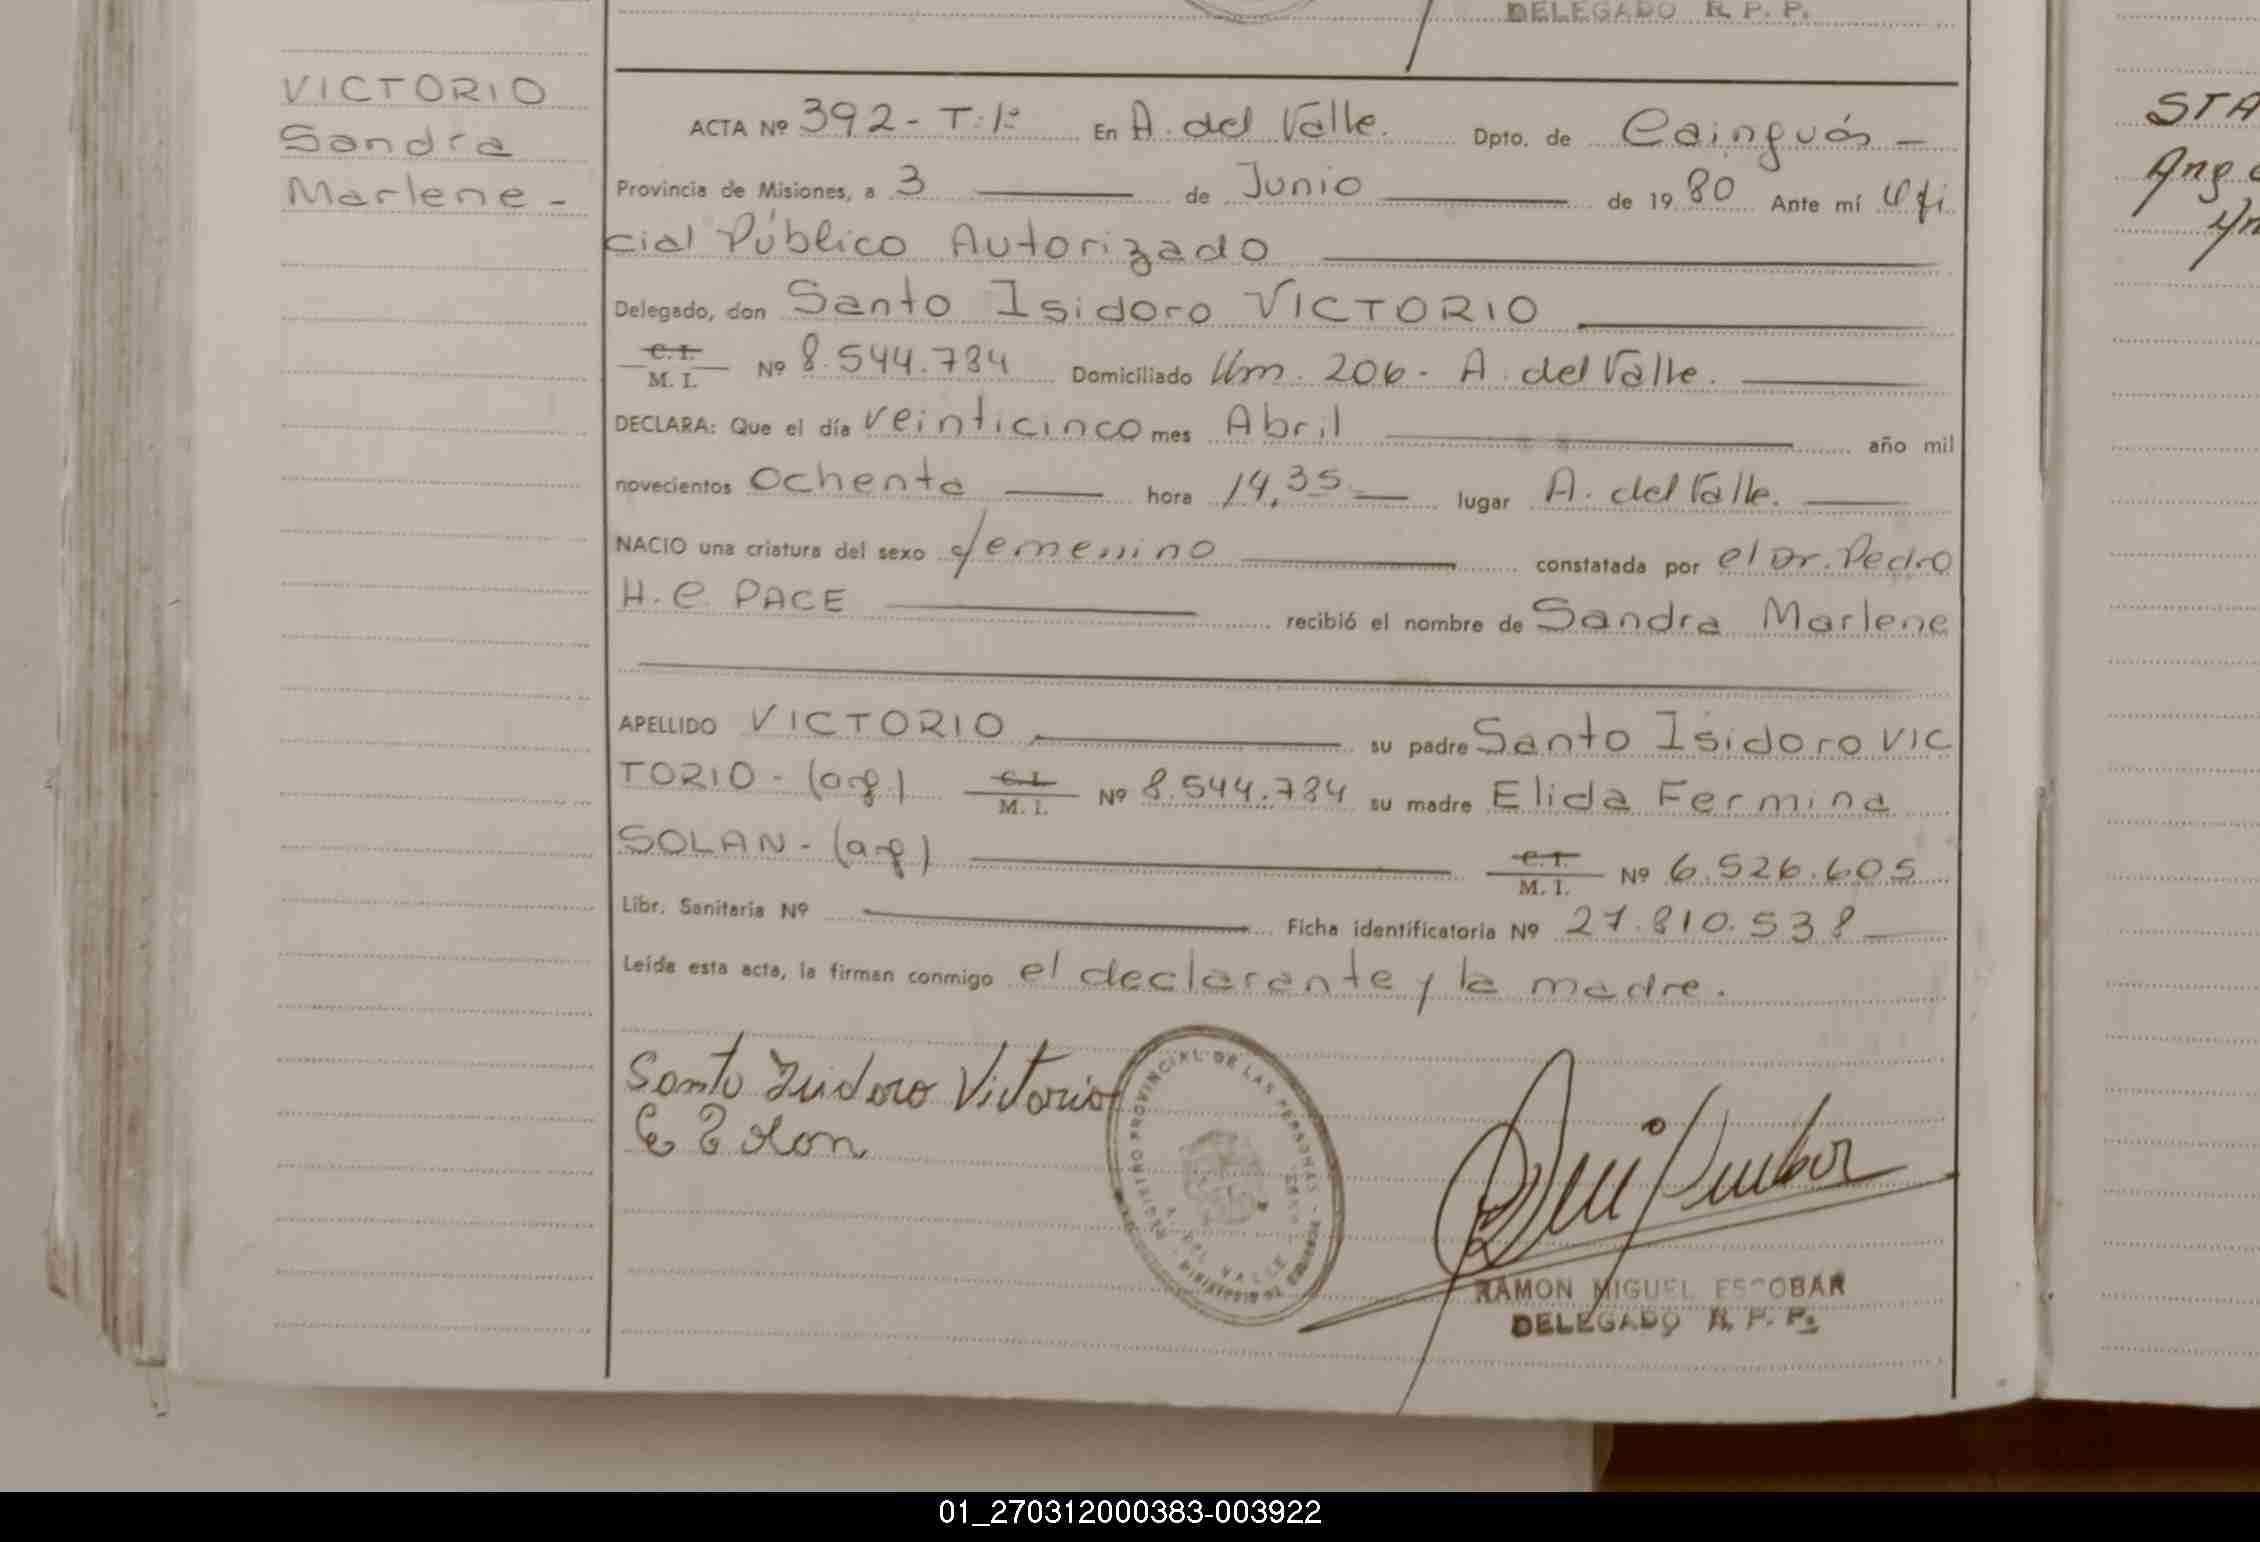 DELEGADO R. P. P.
VICTORIO
Sandra
Marlene -
ACTA Nº 392 - T: 1º En A. del Valle. Dpto. de Cainguás -
Provincia de Misiones, a 3 de Junio de 19 80 Ante mí Ofi
cial Público Autorizado
Delegado, don Santo Isidoro VICTORIO
C. I.
M. I. Nº 8.544.784 Domiciliado Km. 206 - A. del Valle.
DECLARA: Que el día veinticinco mes Abril año mil
novecientos ochenta hora 14,35 lugar A. del Valle.
NACIO una criatura del sexo femenino constatada por el Dr. Pedro
H. C. PACE recibió el nombre de Sandra Marlene
APELLIDO VICTORIO su padre Santo Isidoro VIC
TORIO - (arg) C. I. M. I. Nº 8.544.784 su madre Elida Fermina
SOLAN - (arg) C. I. M. I. Nº 6.526.605
Libr. Sanitaria Nº Ficha identificatoria Nº 27.810.538
Leída esta acta, la firman conmigo el declarante y la madre.
Santo Isidoro Victorio
REGISTRO PROVINCIAL DE LAS PERSONAS
A. DEL VALLE
RAMON MIGUEL ESCOBAR
DELEGADO R. P. P.
STA
Ang
01_270312000383-003922